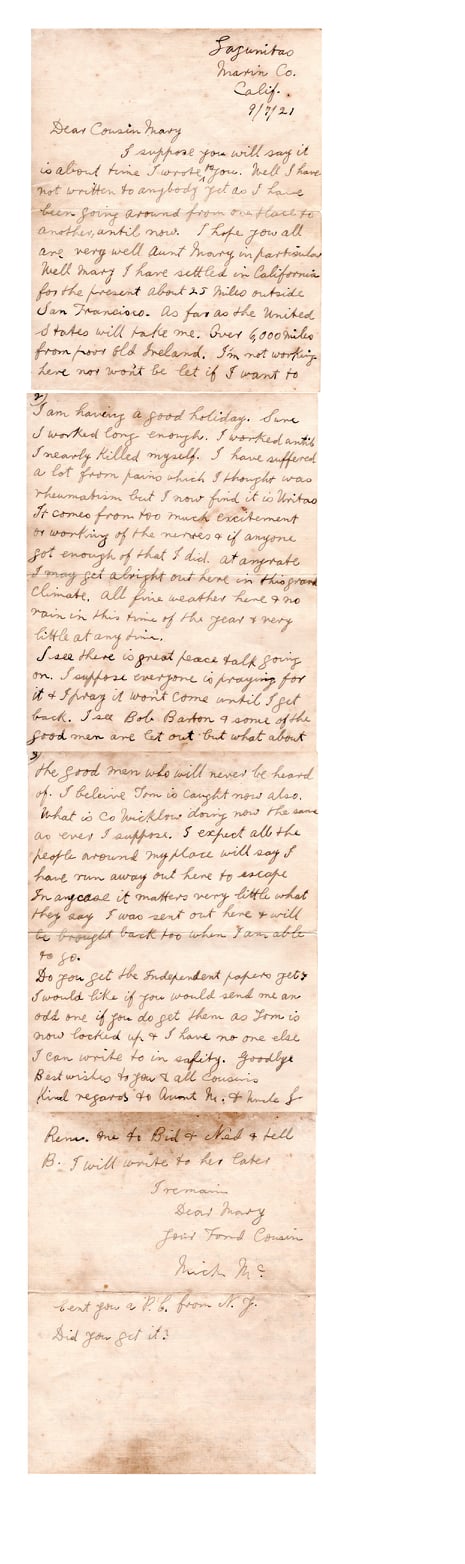 Lagunitas
Marin Co.
Calif.
9/7/21
Dear Cousin Mary
I suppose you will say it
is about time I wrote to you. Well I have
not written to anybody yet as I have
been going around from one place to
another, until now. I hope you all
are very well Aunt Mary in particular
Well Mary I have settled in California
for the present about 25 miles outside
San Francisco. As far as the United
States will take me. Over 6,000 miles
from poor old Ireland. I'm not working
here nor wont be let if I want to
2)
I am having a good holiday. Sure
I worked long enough. I worked until
I nearly killed myself. I have suffered
a lot from pains which I thought was
rheumatism but I now find it is
It comes from too much excitement
or working of the nerves & if anyone
got enough of that I did. at anyrate
I may get alright out here in this grand
Climate. All fine weather here & no
rain in this time of the year & very
little at any time.
I see there is great peace talk going
on. I suppose everyone is praying for
it & I pray it won't come until I get
back. I see Bob Barton & some of the
good men are let out but what about
3)
the good men who will never be heard
of. I beleive Tom is caught now also.
What is Co Wicklow doing now the same
as ever I suppose. I expect all the
people around my place will say I
have run away out here to escape
In anycase it matters very little what
they say I was sent out here & will
be brought back too when I am able
to go.
Do you get the Independent papers yet?
I would like if you would send me an
odd one if you do get them as Tom is
now locked up & I have no one else
I can write to in safity. Goodbye
Best wishes to you & all Cousins
Kind regards to Aunt M. & Uncle J
Rem. me to Bid & Ned & tell
B. I will write to her later
I remain
Dear Mary
Your Fond Cousin
Mich Mc.
Sent you a P.C. from N.Y.
Did you get it?